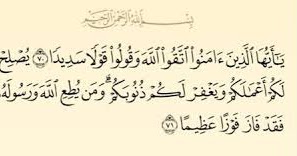 بِسْمِ ٱللَّهِ ٱلرَّحْمَٰنِ ٱلرَّحِيمِ
يَٰٓأَيُّهَا ٱلَّذِينَ ءَامَنُوا۟ ٱتَّقُوا۟ ٱللَّهَ وَقُولُوا۟ قَوْلًا سَدِيدًا ٧٠ يُصْلِحْ
لَكُمْ أَعْمَٰلَكُمْ وَيَغْفِرْ لَكُمْ ذُنُوبَكُمْ ۗ وَمَن يُطِعِ ٱللَّهَ وَرَسُولَهُۥ
فَقَدْ فَازَ فَوْزًا عَظِيمًا ٧١